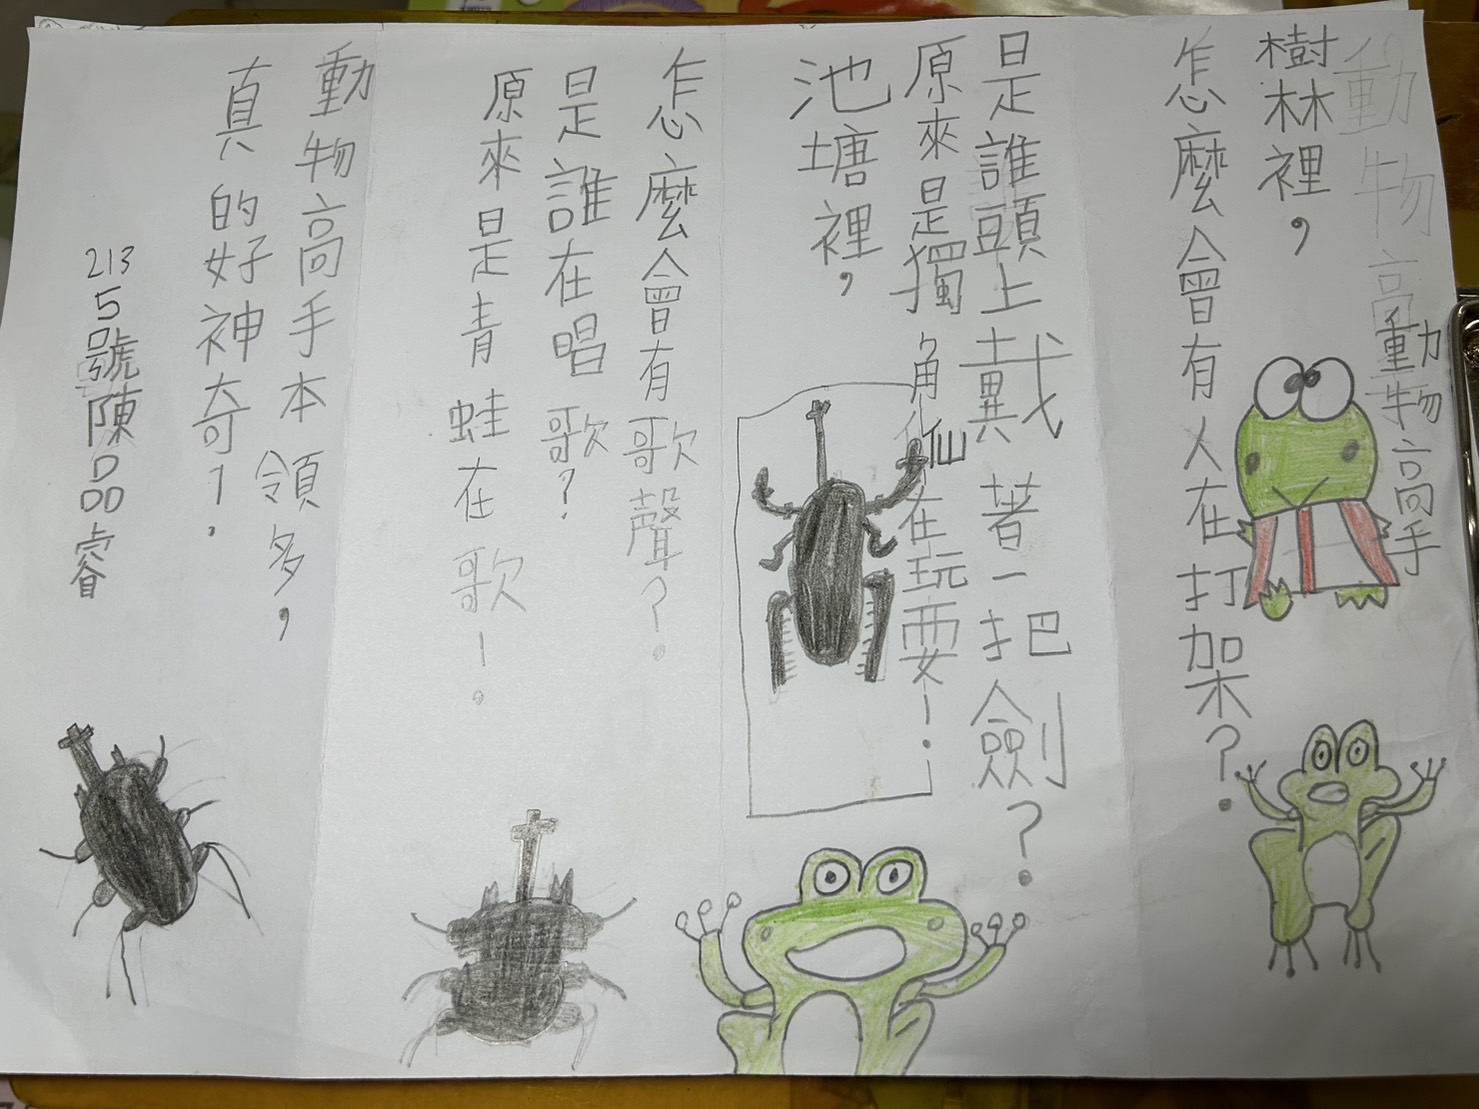 動物高
動物高手
樹林裡，
怎麼會有人在打架？
是誰頭上戴著一把劍？
原來是獨角仙在玩耍！
池塘裡，
怎麼會有歌聲？
是誰在唱歌？
原來是青蛙在歌！
動物高手本領多，
真的好神奇！
213
5號陳品睿